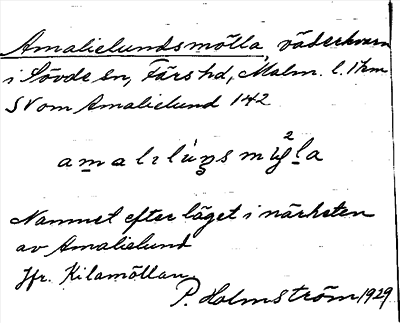 Amalielundsmölla, väderkvarn
i Sövde sn, Färs hd, Malm. l. 1 km
SV om Amalielund 142
Namnet efter läget i närheten
av Amalielund
Jfr. Kilamöllan
P. Holmström 1929